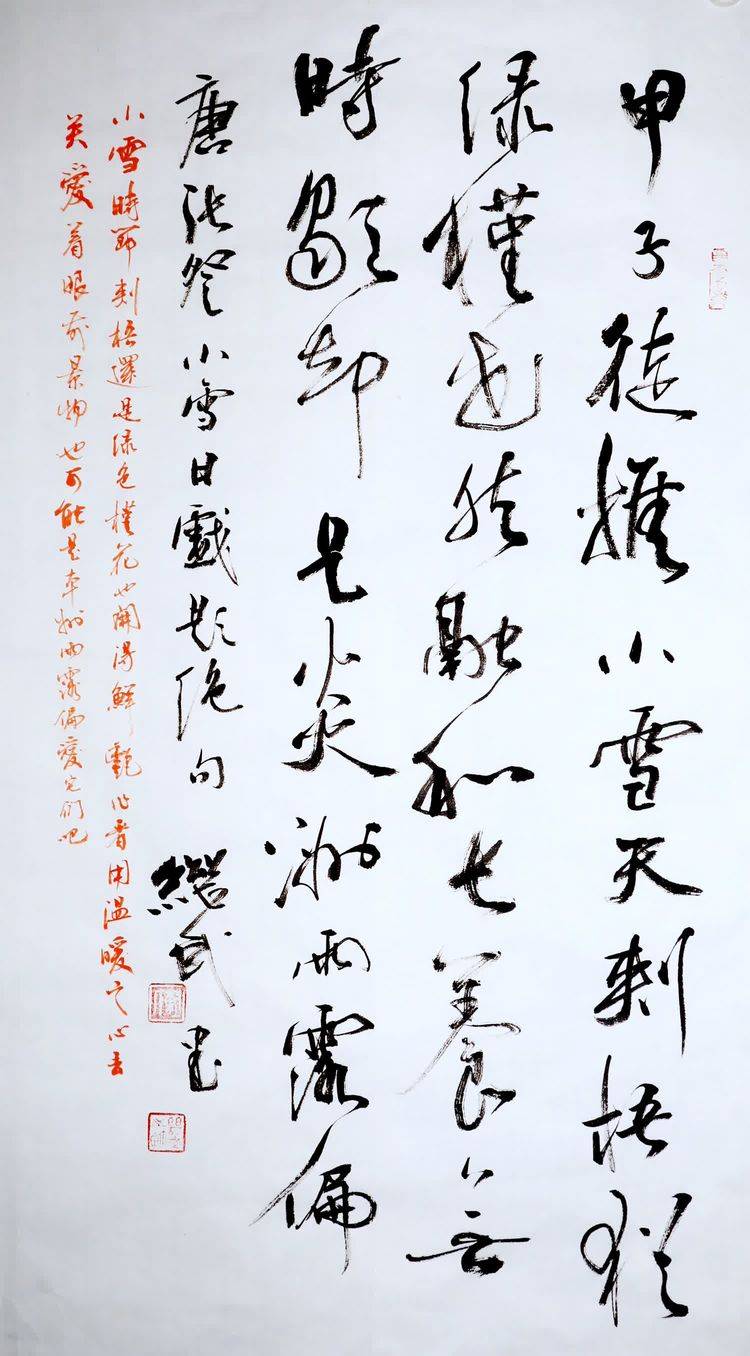 甲子徒推小雪天刺梧犹
绿槿花然融和长養無
時歇却是炎洲雨露偏
唐张登小雪日戲题绝句 繼武书
小雪時節刺梧還是绿色槿花也開得鮮艷作者用温暖之心去
关愛着眼前景物也可能是本洲雨露偏愛它们吧